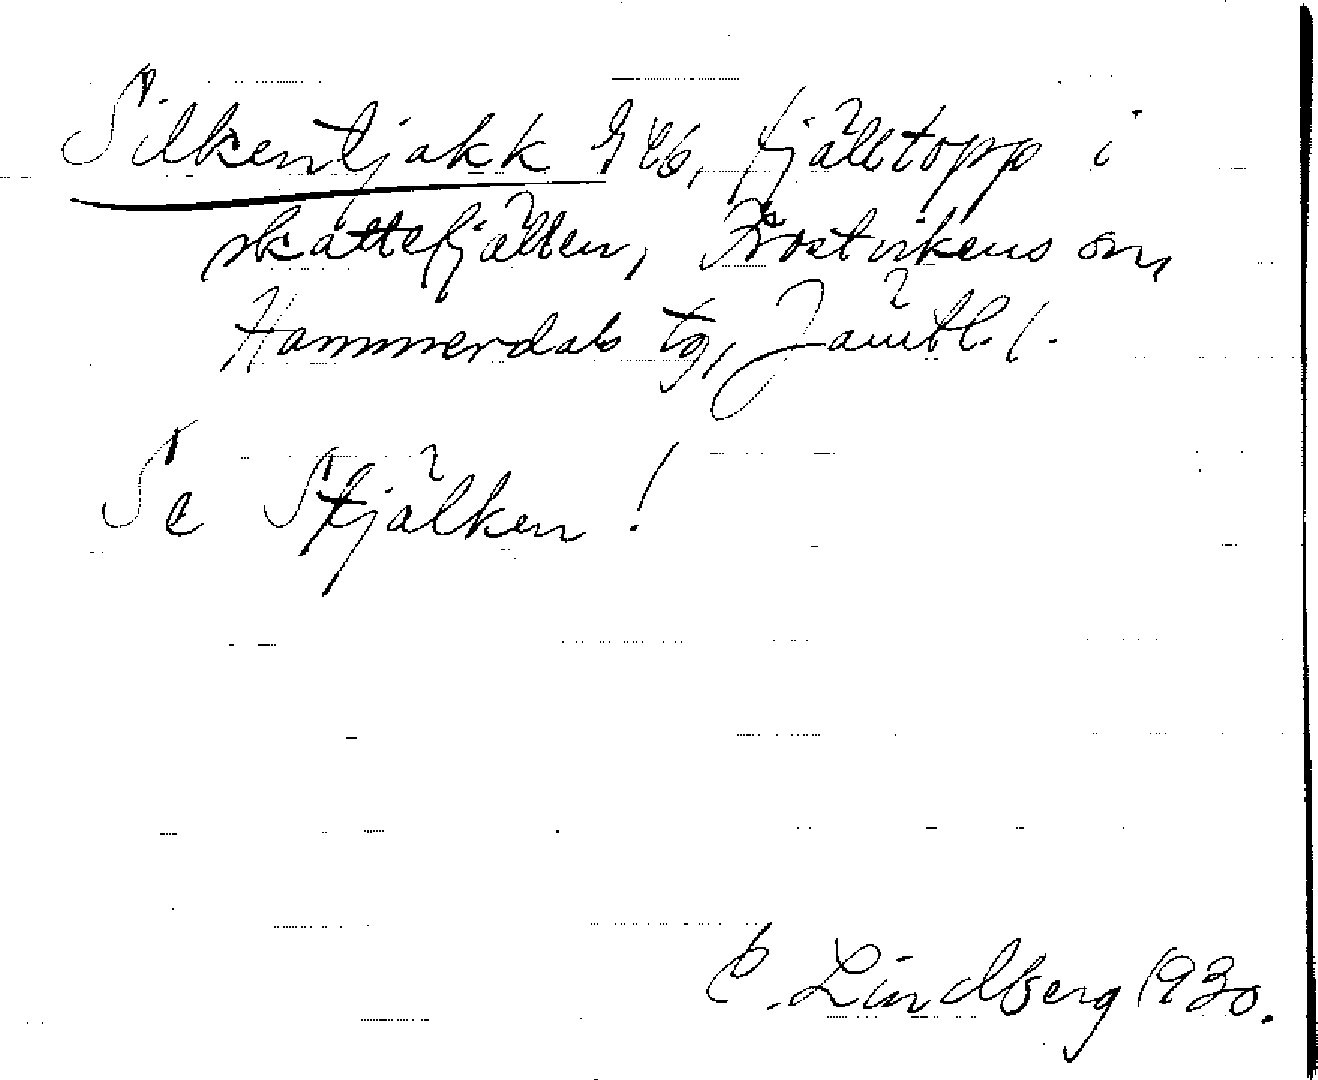 Silkentjakk GEB, fjälltopp i
skattefjällen, Frostvikens sn,
Hammerdals tg, Jämtl. l.
Se Stjälken!
C. Lindberg 1930.